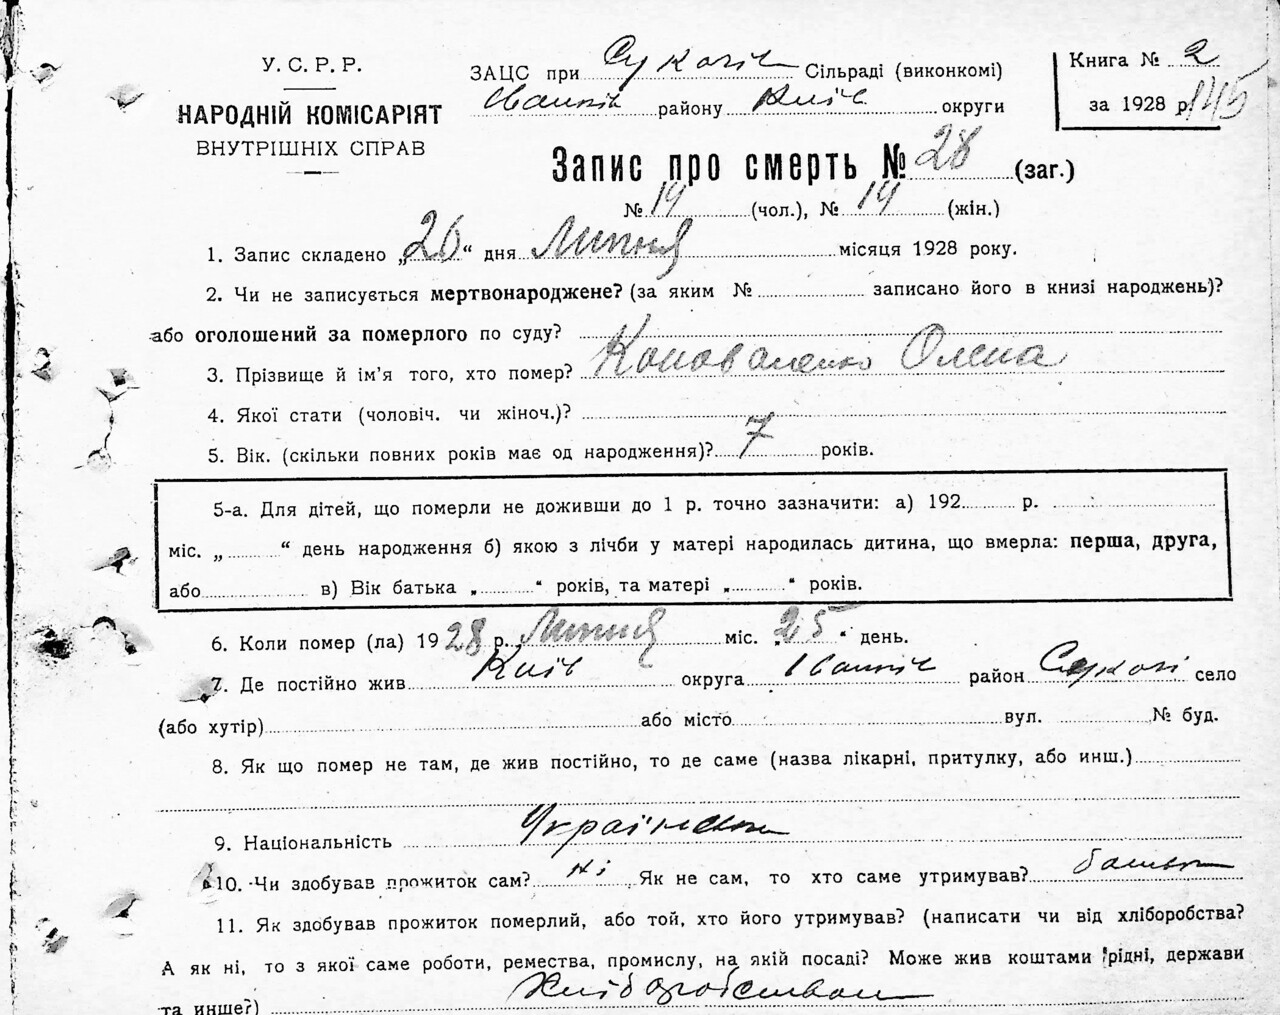 У. С. Р. Р.
НАРОДНІЙ КОМІСАРІЯТ
ВНУТРІШНІХ СПРАВ
ЗАЦС при Сукачів Сільраді (виконкомі)
Іванків району Київ округи
Книга № 2
за 1928 р. 145
Запис про смерть № 28 (заг.)
№ 14 (чол.), № 14 (жін.)
1. Запис складено „26“ дня Липня місяця 1928 року.
2. Чи не записується мертвонароджене? (за яким № записано його в книзі народжень)?
або оголошений за померлого по суду?
3. Прізвище й ім'я того, хто помер? Коноваленко Олена
4. Якої стати (чоловіч. чи жіноч.)?
5. Вік. (скільки повних років має од народження)? 7 років.
5-а. Для дітей, що померли не доживши до 1 р. точно зазначити: а) 192 р.
міс. „ “ день народження б) якою з лічби у матері народилась дитина, що вмерла: перша, друга,
або в) Вік батька „ “ років, та матері „ “ років.
6. Коли помер (ла) 1928 р. Липня міс. „25“ день.
7. Де постійно жив Київ округа Іванків район Сукачі село
(або хутір) або місто вул. № буд.
8. Як що помер не там, де жив постійно, то де саме (назва лікарні, притулку, або инш.)
9. Національність Українка
10. Чи здобував прожиток сам? ні Як не сам, то хто саме утримував? батько
11. Як здобував прожиток померлий, або той, хто його утримував? (написати чи від хліборобства?
А як ні, то з якої саме роботи, ремества, промислу, на якій посаді? Може жив коштами рідні, держави
та инше?) Хліборобством